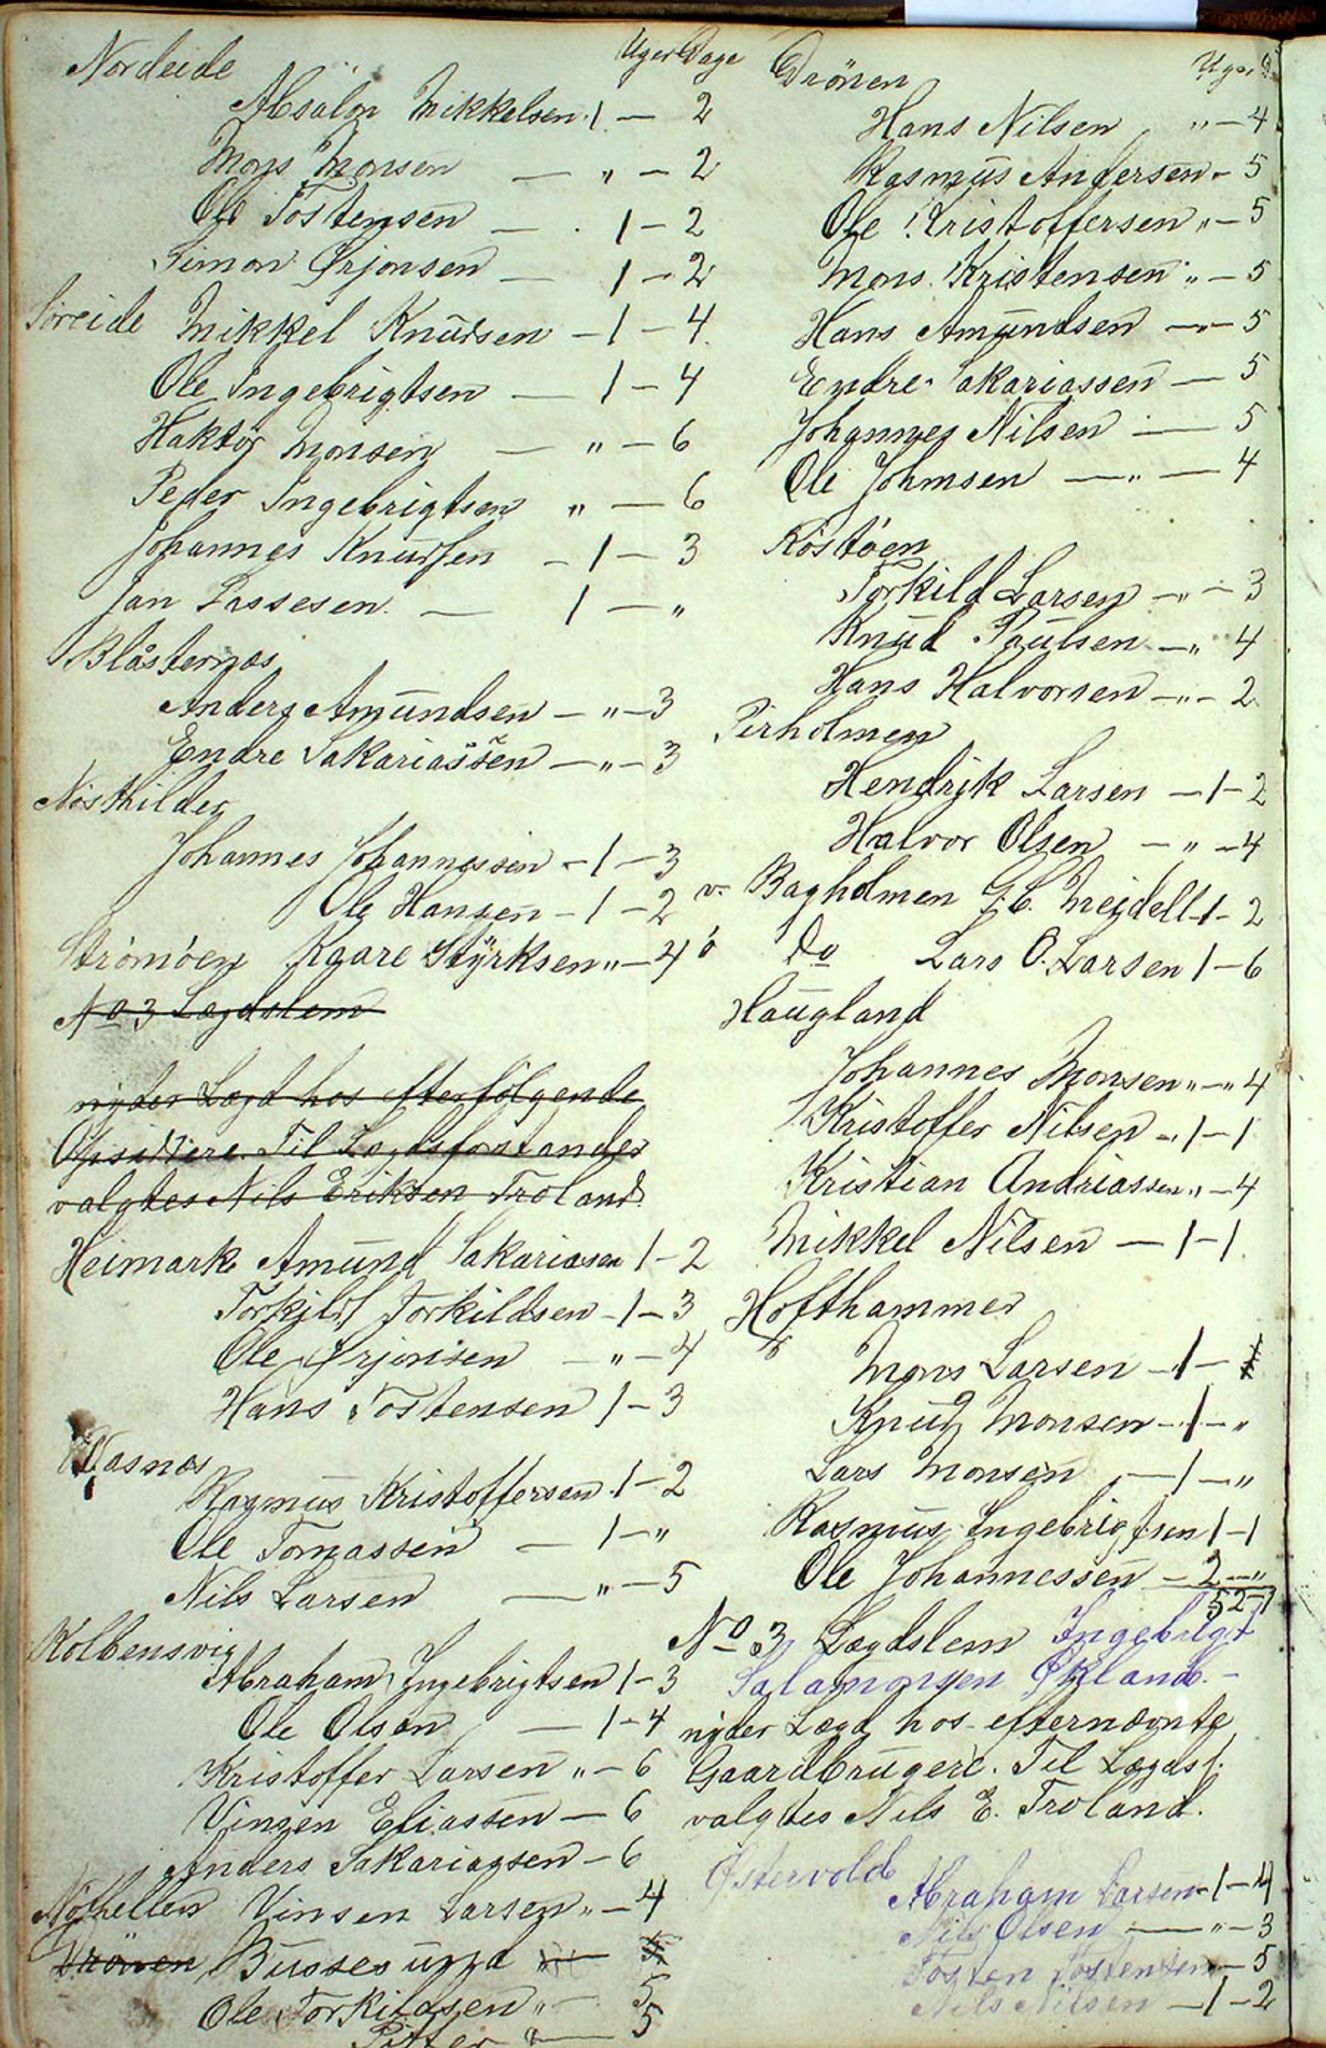 Nordeide Uger Dage
Absalon Mikkelsen 1 — 2
Mons Monsen — „ — 2
Ole Tostensen — 1 — 2
Simon Ørjonsen — 1 — 2
Söreide Mikkel Knudsen — 1 — 4
Ole Ingebrigtsen — 1 — 4
Haktor Monsen — „ — 6
Peder Ingebrigtsen „ — 6
Johannes Knudsen — 1 — 3
Jan Lassesen — 1 — „
Blåsternæs
Anders Amundsen — „ — 3
Endre Sakariassen — „ — 3
Nöstkilder
Johannes Johannessen — 1 — 3
Ole Hansen — 1 — 2
Strömöen Kaare Styrksen „ — 4
No 3 Lægdslem
nyder Lægd hos efterfölgende
Opsiddere. Til Lægdsforstander
valgtes Nils Eriksen Troland.
Heimark Amund Sakariasen 1 — 2
Torkild Torkildsen — 1 — 3
Ole Ørjonsen — „ — 4
Hans Tostensen 1 — 3
Vasnæs
Rasmus Kristoffersen 1 — 2
Ole Tomassen — 1 — „
Nils Larsen — „ — 5
Kolbensvig
Abraham Ingebrigtsen 1 — 3
Ole Olsen — 1 — 4
Kristoffer Larsen „ — 6
Vinsen Eliassen — 6
Anders Sakariassen — 6
Nöthellen Vinsen Larsen „ — 4
Drönen Bussesund
Ole Torkildsen „ — 5
Pitter „ — 5
Drönen Uger D.
Hans Nilsen „ — 4
Rasmus Andersen — 5
Ole Kristoffersen „ — 5
Mons Kristensen „ — 5
Hans Amundsen — „ — 5
Endre Sakariassen — 5
Johannes Nilsen — 5
Ole Johnsen — „ — 4
Röstöen
Torkild Larsen — „ — 3
Knud Paulsen — „ 4
Hans Halvorsen — „ — 2
Pirholmen
Hendrik Larsen — 1 — 2
Halvor Olsen — „ — 4
v. Bagholmen G. C. Meidell 1 — 2
ö Do Lars O. Larsen 1 — 6
Haugland
Johannes Monsen „ — „ 4
Kristoffer Nilsen — „ 1 — 1
Kristian Andriassen „ — 4
Mikkel Nilsen — 1 — 1
Hofthammer
Mons Larsen — 1 —
Knud Monsen — 1 — „
Lars Monsen — 1 — „
Rasmus Ingebrigtsen 1 — 1
Ole Johannessen — 2 — „
52 — 1
No 3 Lægdslem Ingebrigt
Salamonsen Økland. —
nyder Lægd hos efternævnte
Gaardbrugere. Til Lægdsf.
valgtes Nils E. Troland.
Østervold
Abraham Larsen — 1 — 4
Nils Olsen — „ — 3
Tosten Tostensen — 5
Nils Nilsen — 1 — 2